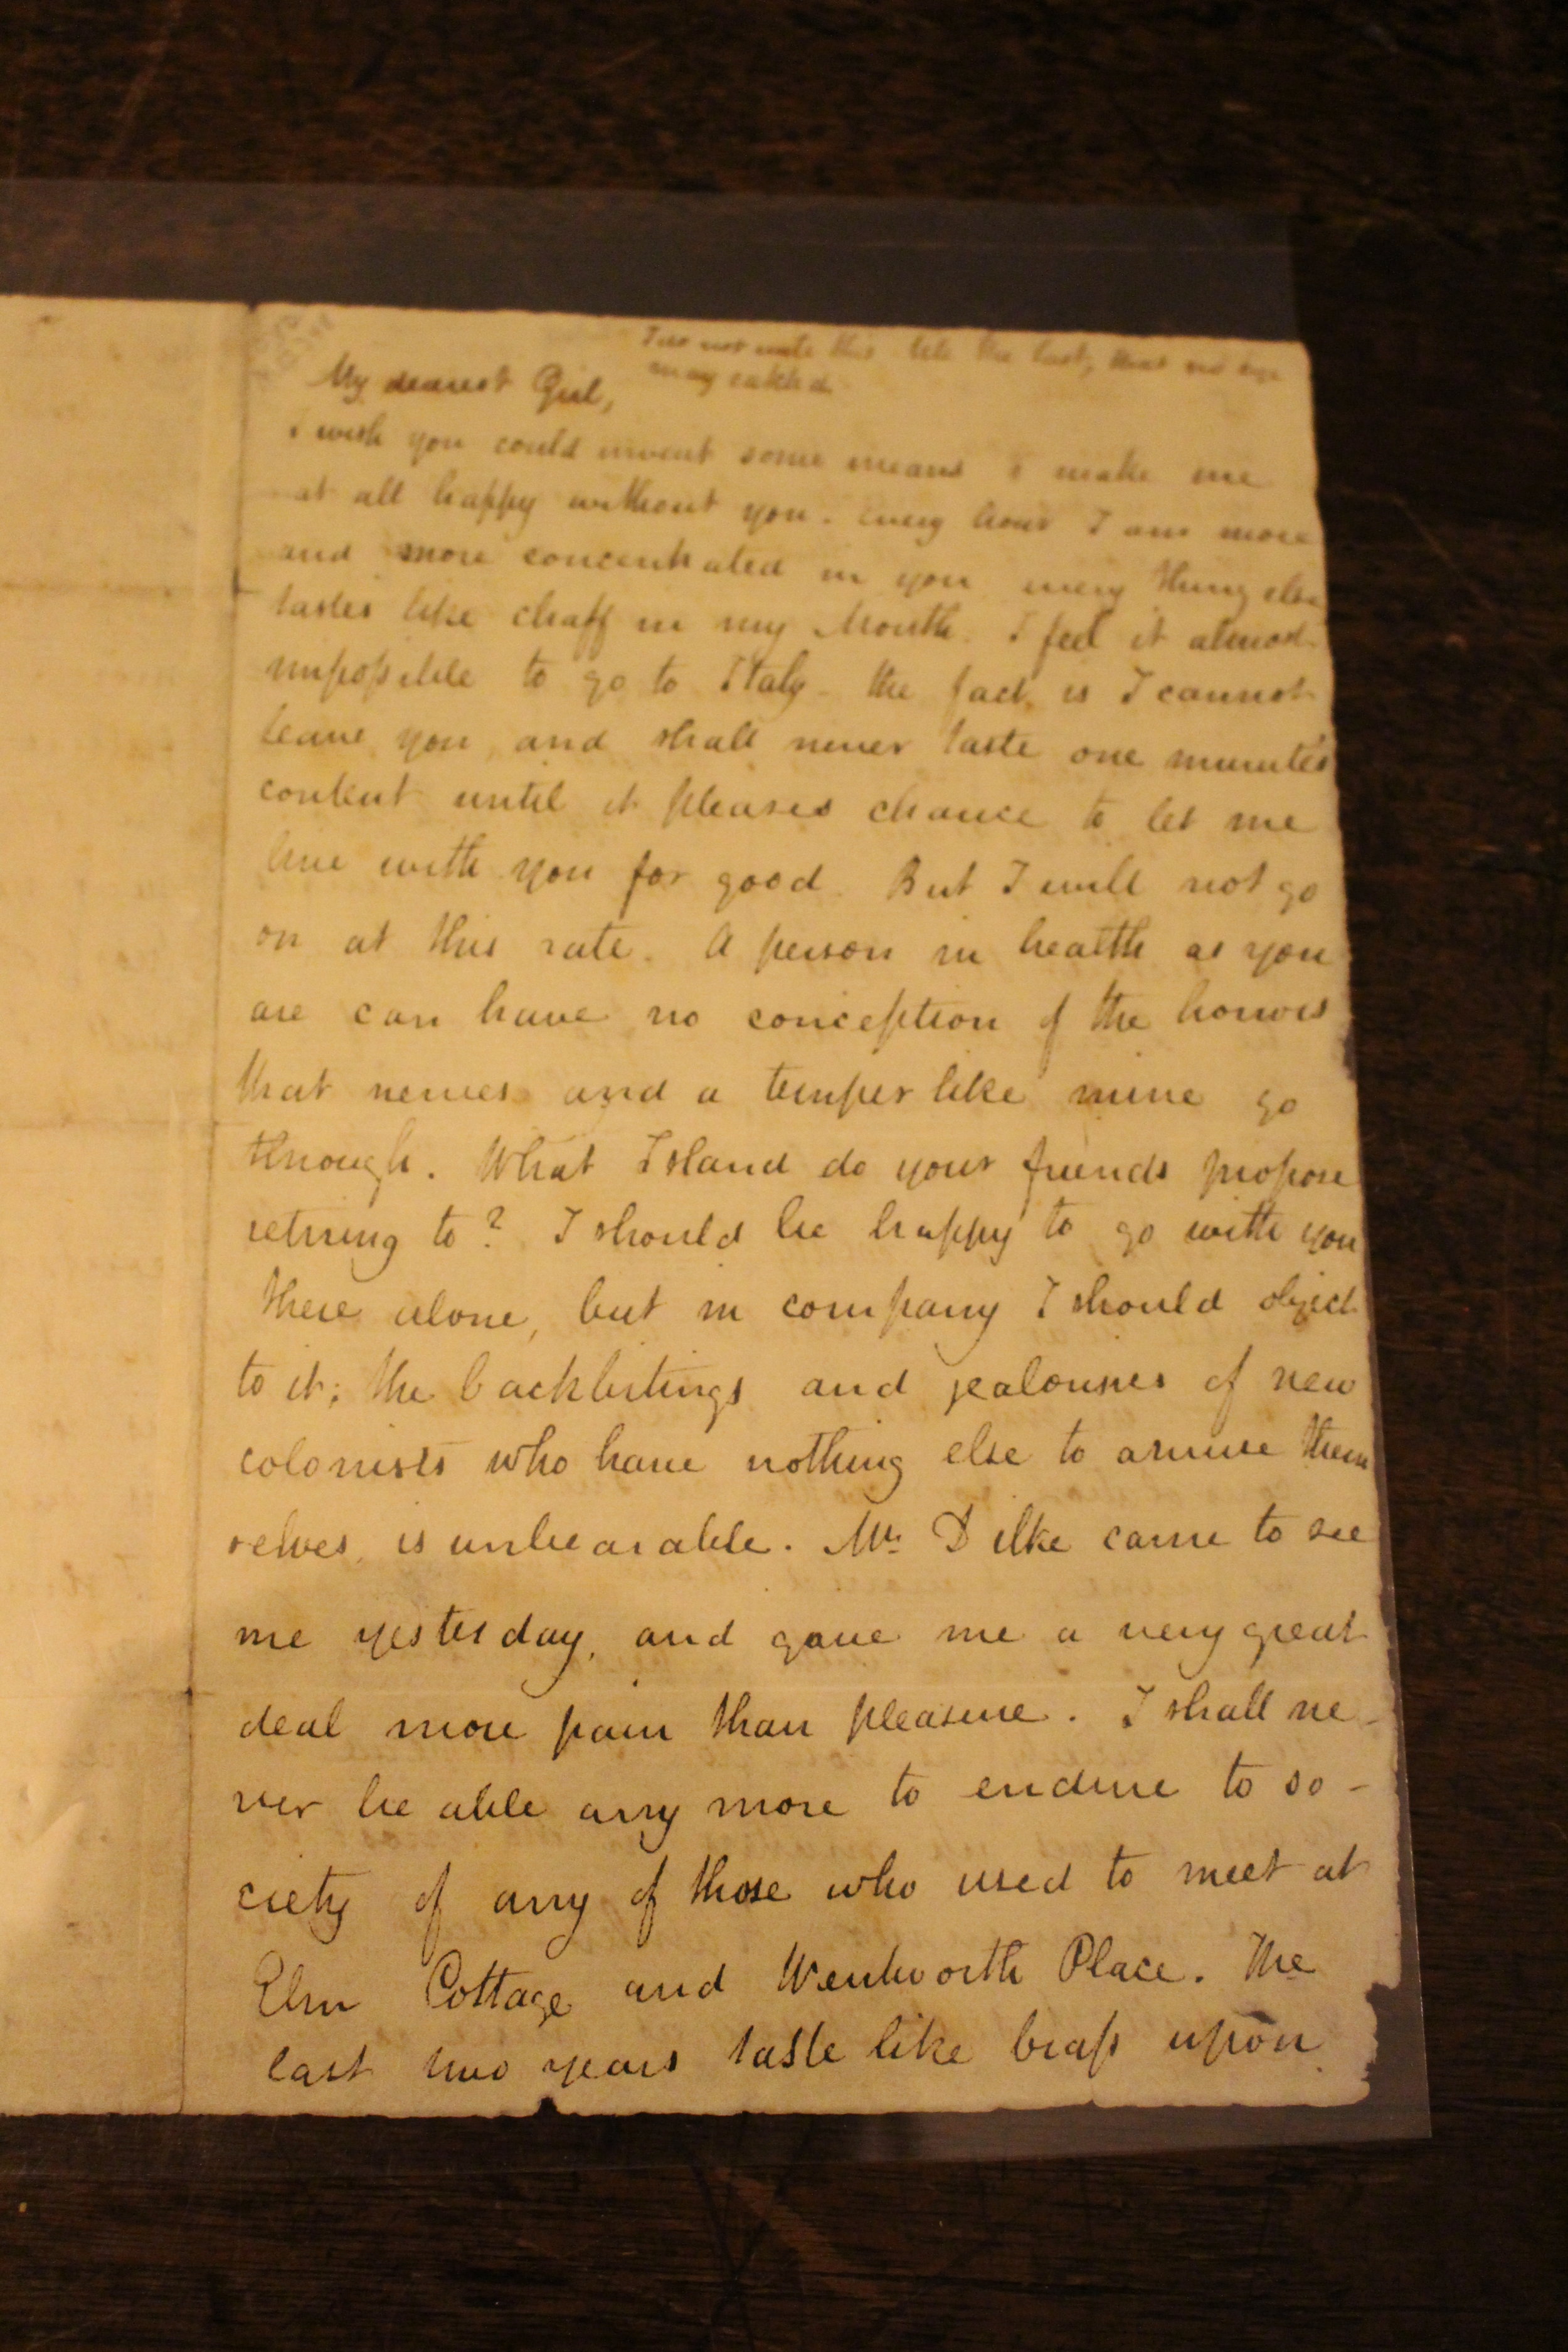 I do not write this till the last, that no eye
may catch it.
My dearest Girl,
I wish you could invent some means to make me
at all happy without you. Every hour I am more
and more concentrated in you every thing else
tastes like chaff in my Mouth. I feel it almost
impossible to go to Italy the fact is I cannot
leave you and shall never taste one minute's
content until it pleases chance to let me
live with you for good. But I will not go
on at this rate. A person in health as you
are can have no conception of the horrors
that nerves and a temper like mine go
through. What Island do your friends propose
retiring to? I should be happy to go with you
there alone, but in company I should object
to it; the backbitings and jealousies of new
colonists who have nothing else to amuse them
selves is unbearable. Mr. Dilke came to see
me yesterday, and gave me a very great
deal more pain than pleasure. I shall ne-
ver be able any more to endure to so-
ciety of any of those who used to meet at
Elm Cottage and Wentworth Place. The
last two years taste like brass upon